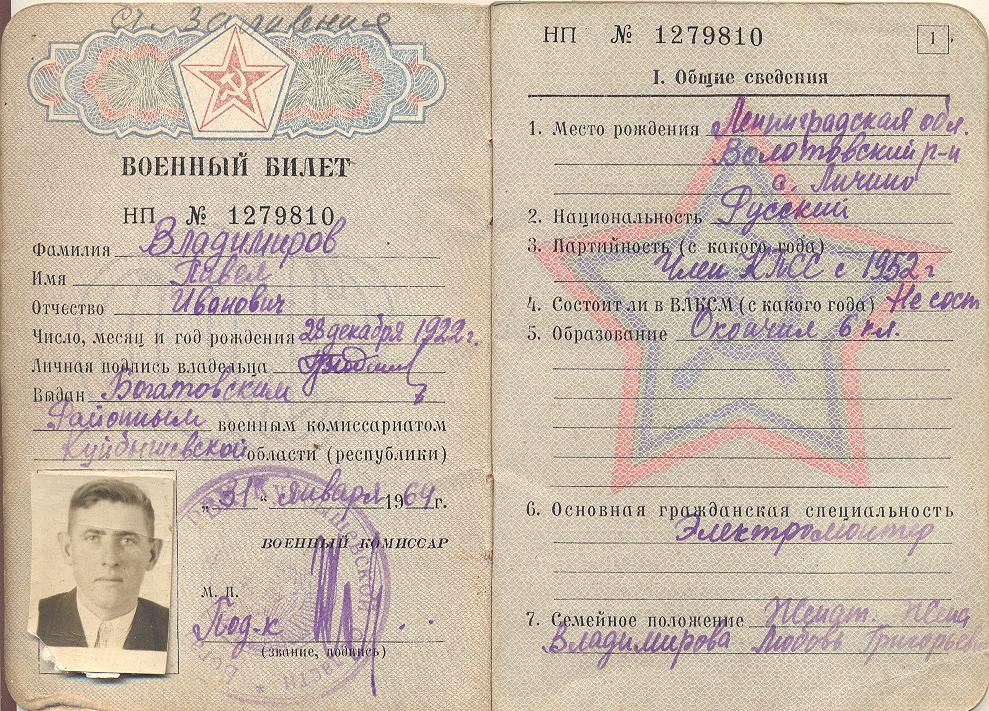 ВОЕННЫЙ БИЛЕТ
НП № 1279810
Фамилия Владимиров
Имя Павел
Отчество Иванович
Число, месяц и год рождения 28 декабря 1922 г.
Личная подпись владельца
Выдан Богатовским
Районным военным комиссариатом
Куйбышевской области (республики)
„31“ января 1964 г.
ВОЕННЫЙ КОМИССАР
М. П.
Под-к
(звание, подпись)
НП № 1279810
1
I. Общие сведения
1. Место рождения Ленинградская обл.
Волотовский р-н
с. Личино
2. Национальность Русский
3. Партийность (с какого года)
Член КПСС с 1952 г
4. Состоит ли в ВЛКСМ (с какого года) Не сост
5. Образование Окончил 6 кл.
6. Основная гражданская специальность
Электромонтер
7. Семейное положение Женат. Жена
Владимирова Любовь Григорьев